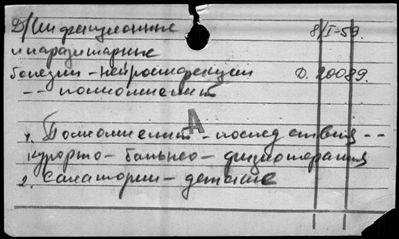 Д/Инфекционные 8/I-59.
и паразитарные
болезни - нейроинфекции О. 20089.
- - полиомиелит
А
1. Полиомиелит - последствия - -
курорто - бальнео - физиотерапия
2. Санатории - детские